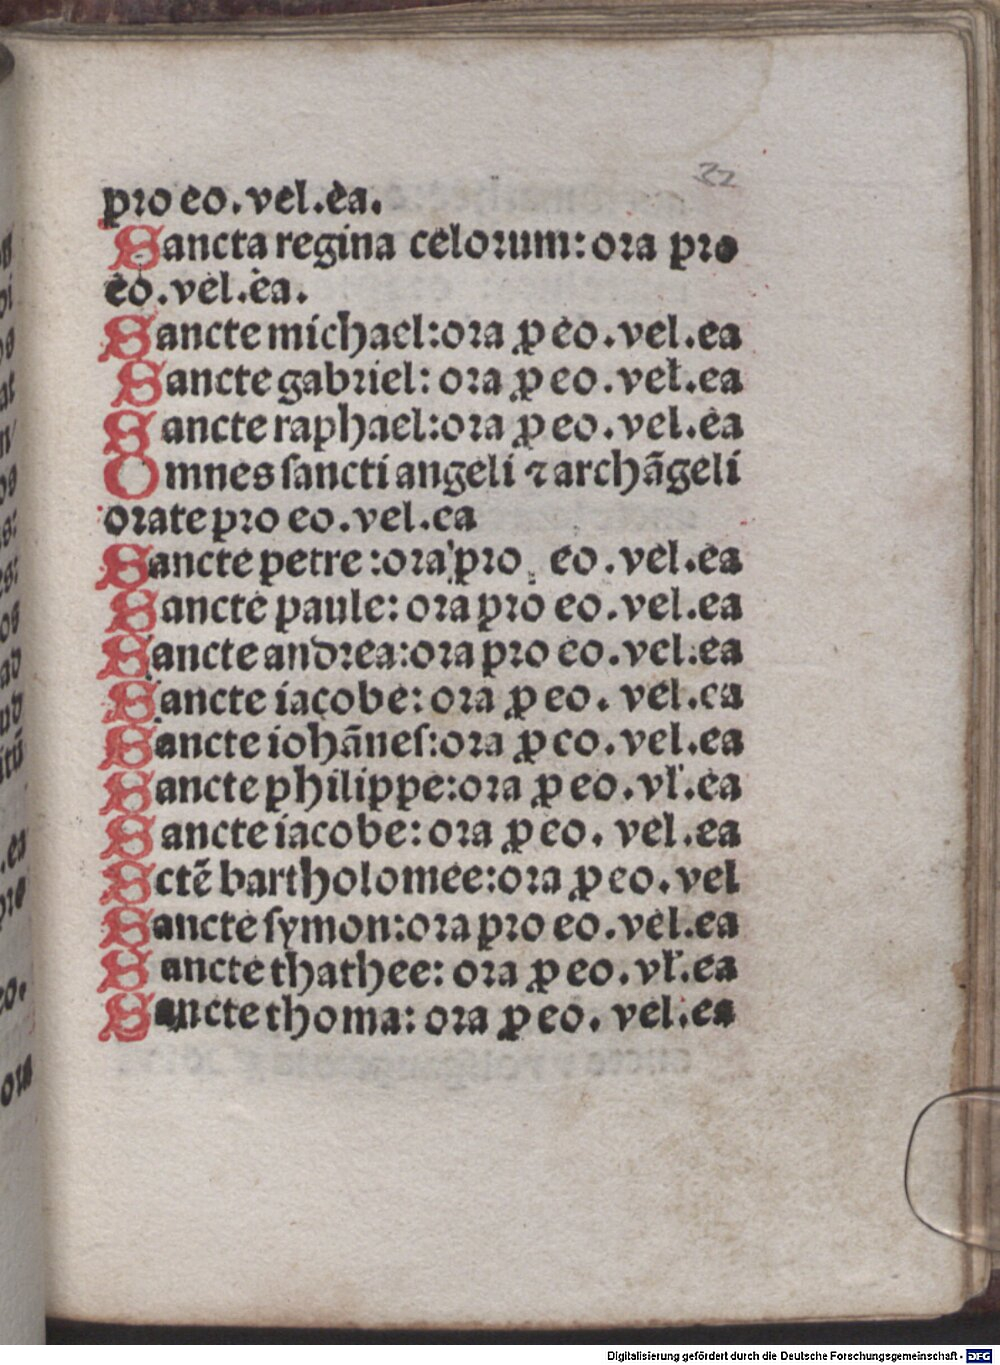 32
pro eo. vel. ea.
Sancta regina celorum: ora pro
eo. vel. ea.
Sancte michael: ora ꝓ eo. vel. ea
Sancte gabriel: ora ꝓ eo. vel. ea
Sancte raphael: ora ꝓ eo. vel. ea
Omnes ſancti angeli ⁊ archãgeli
orate pro eo. vel. ea
Sancte petre: ora pro eo. vel. ea
Sancte paule: ora pro eo. vel. ea
Sancte andrea: ora pro eo. vel. ea
Sancte iacobe: ora ꝓ eo. vel. ea
Sancte iohãneſ: ora ꝓ eo. vel. ea
Sancte philippe: ora ꝓ eo. vl'. ea
Sancte iacobe: ora ꝓ eo. vel. ea
Sctẽ bartholomee: ora ꝓ eo. vel
Sancte ſymon: ora pro eo. vel. ea
Sancte thathee: ora ꝓ eo. vl'. ea
Sancte thoma: ora ꝓ eo. vel. ea
Digitalisierung gefördert durch die Deutsche Forschungsgemeinschaft - DFG